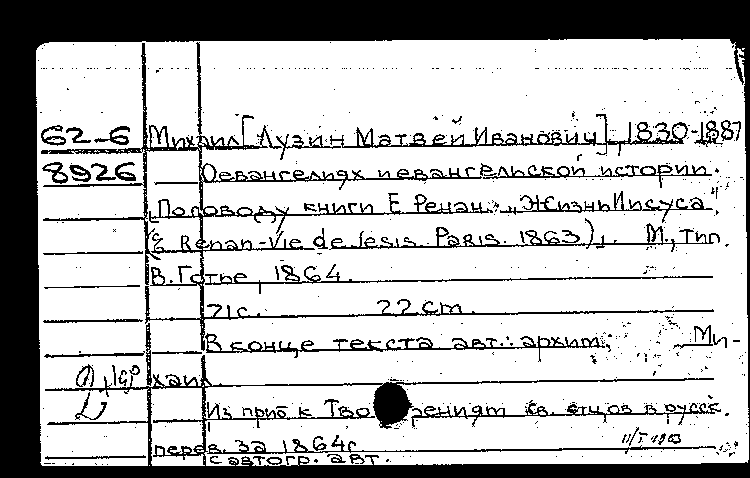 62-6 Михаил [Лузин Матвей Иванович], 1830-1887
8926 О евангелиях и евангельской истории.
"По поводу книги Е. Ренана „Жизнь Иисуса"
(E. Renan-Vie de Jesis. Paris. 1863),. М., тип.
В. Готье, 1864.
71с. 22 cm.
В конце текста авт.: архим. Ми-
хаил
Из приб к Творениям св. отцов в русск.
перев. за 1864г
с автогр. авт.